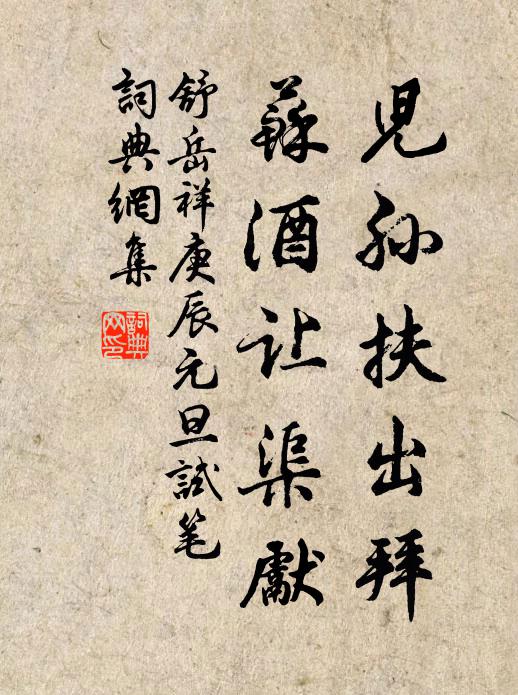 児孙扶出拜
蘇酒让渠獻
舒岳祥庚辰元旦試笔
詞典網集
詞典
网印